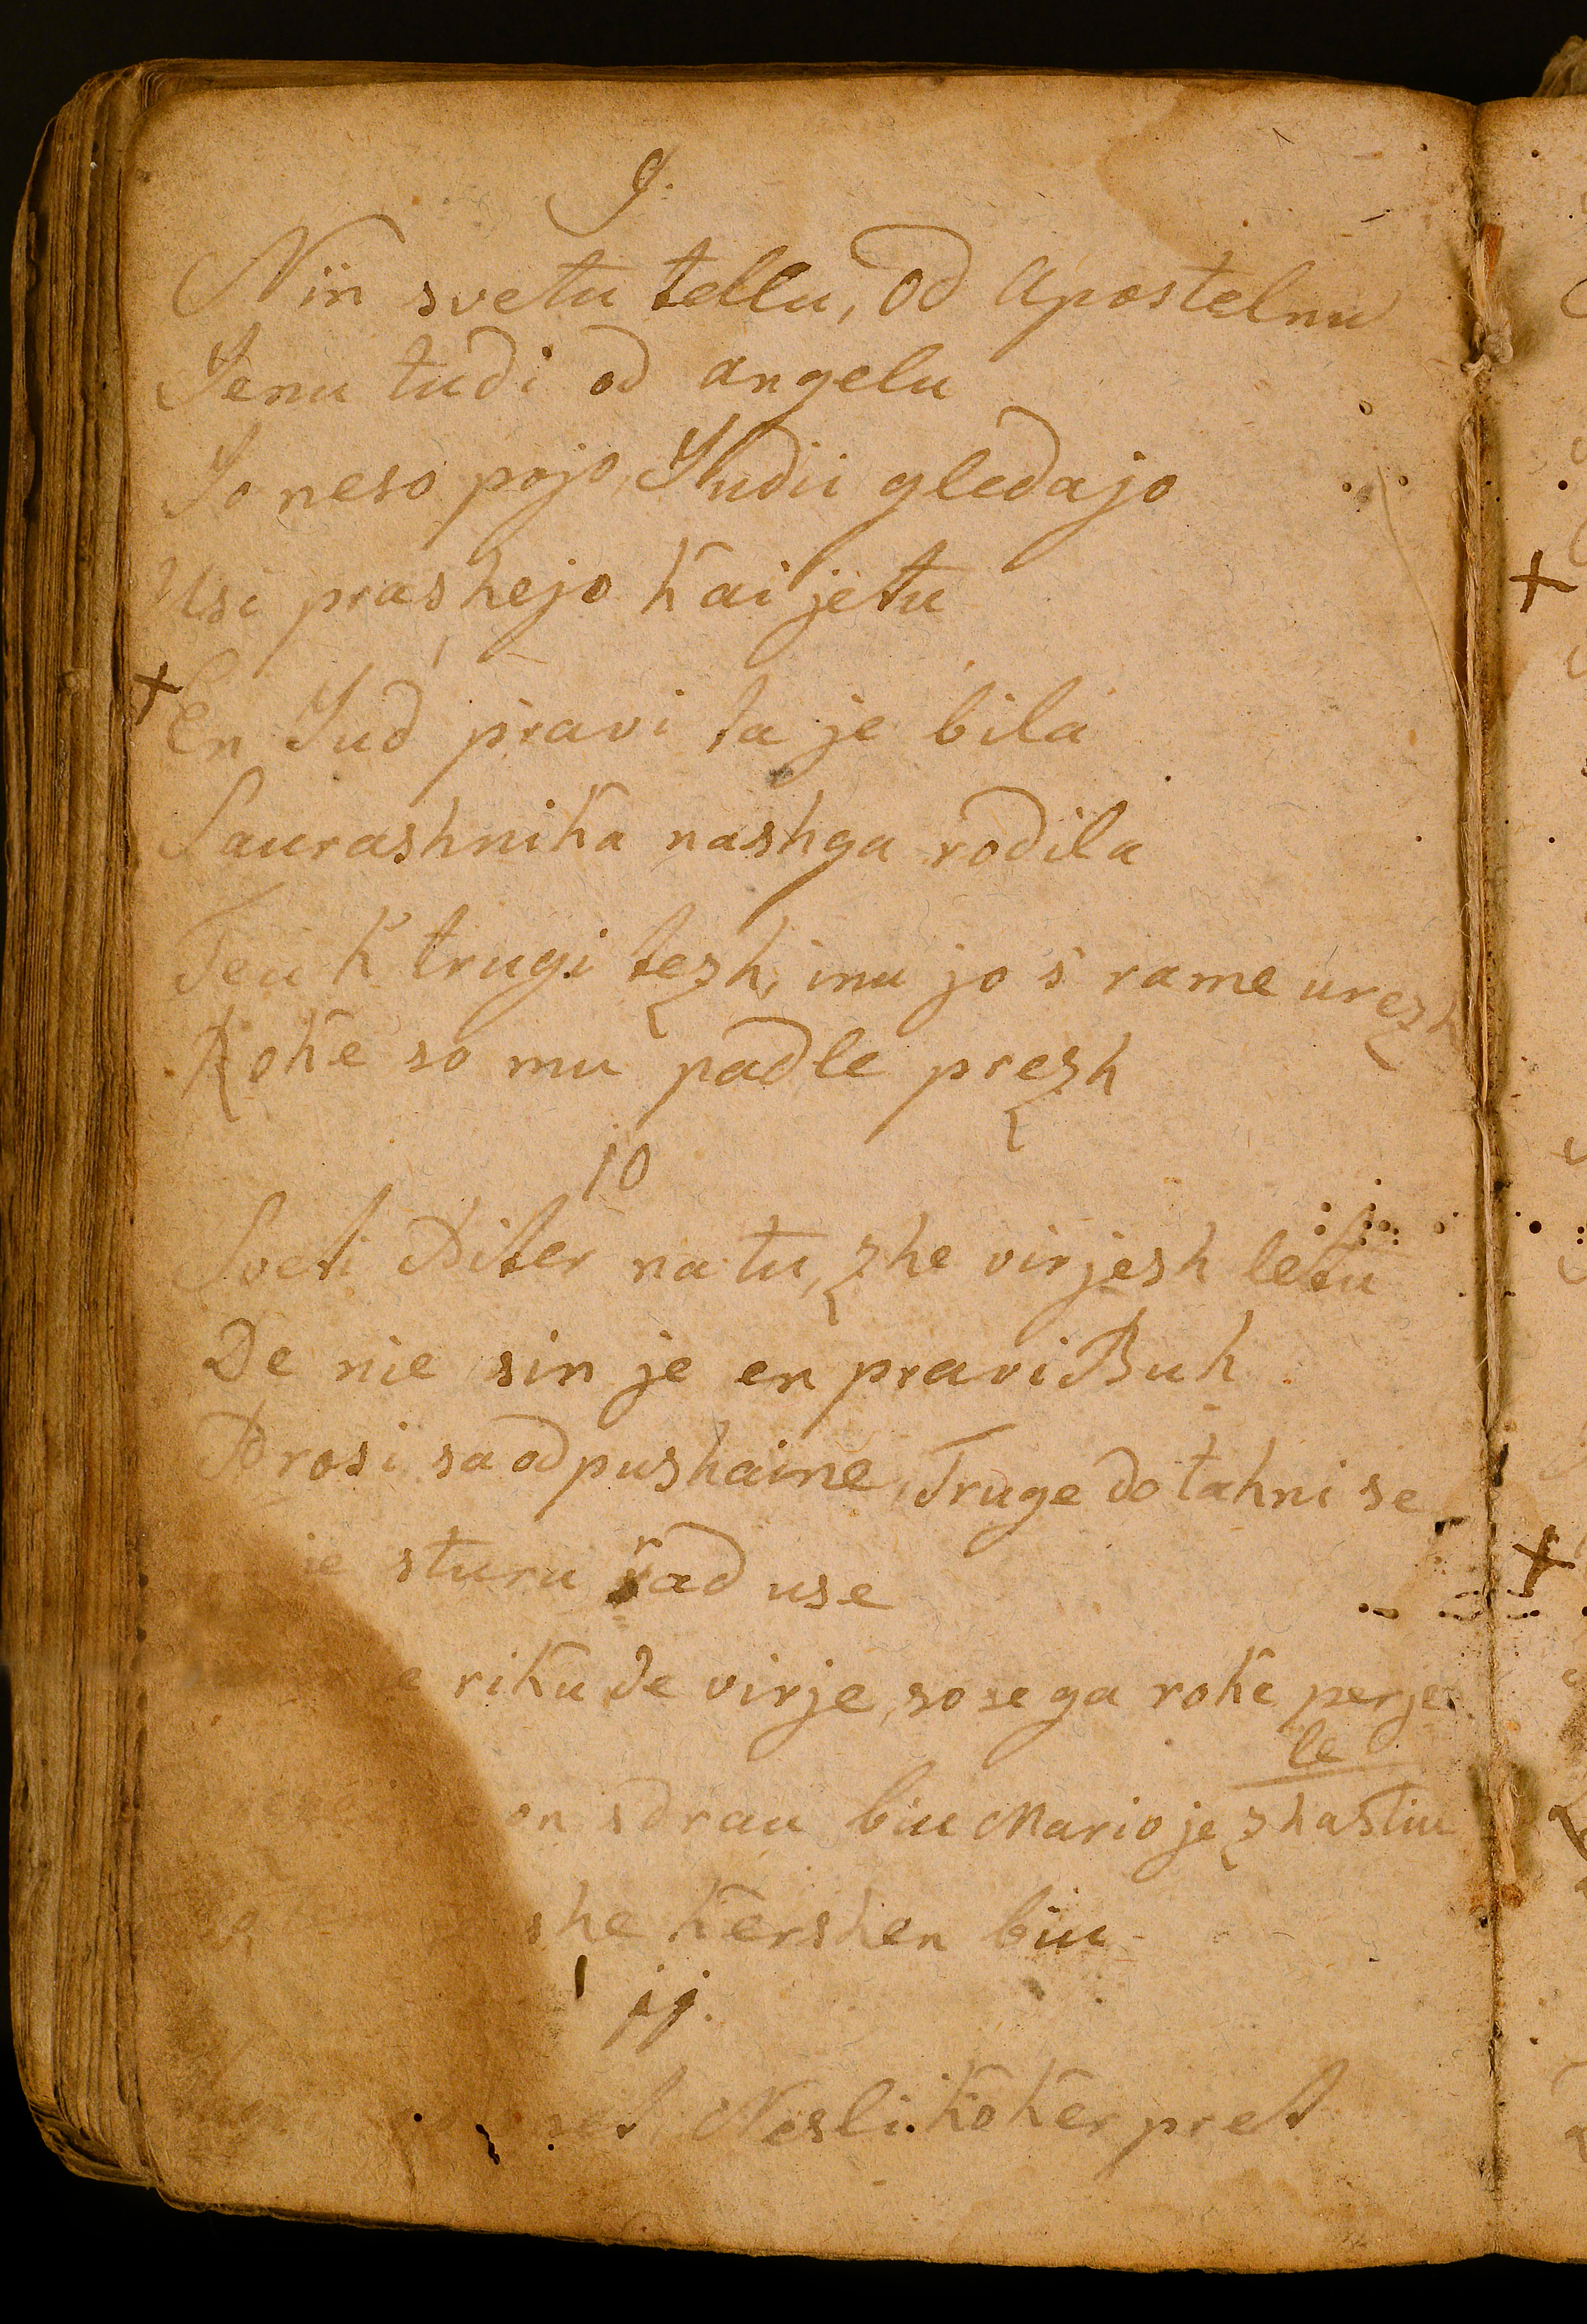 9.
Niin svetu tellu, od apostelnu
Jenu tudi od angelu
Jo neso pojo, Judii gledajo
Usi prashejo kai je tu
+ En Jud pravi ta je bila
Saurashnika nashga rodila
Teu k trugi tezh, inu jo s' rame urezh
Roke so mu padle prezh
10
Sveti Piter na tu, zhe virjesh letu
De nie sin je en pravi Buh
Prosi sa odpushaine, Truge dotahni se
sturu rad use
riku de virje, so se ga roke perje
le
on sdrau biu Mario je zhastiu
kershen biu
11.
Nesli koker pret